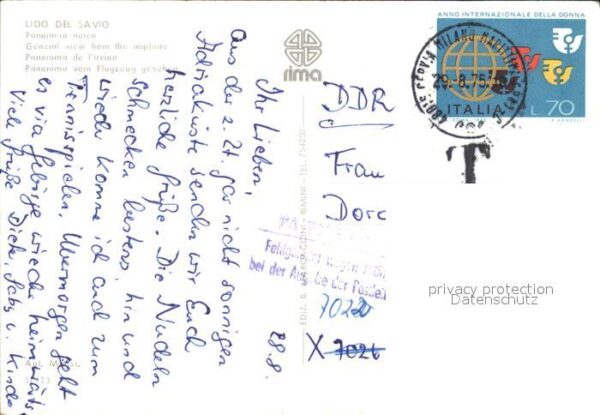 LIDO DEL SAVIO
Panorama aereo
General view from the airplane
Panorama de l'avion
Panorama vom Flugzeug gesehen
rima
28.8.
Ihr Lieben,
aus der z. Zt. gar nicht sonnigen
Adriaküste senden wir Euch
herzliche Grüße. Die Nudeln
schmecken bestens, hin und
wieder komme ich auch zum
Tennisspielen. Übermorgen geht
es via Gebirge wieder heimwärts.
Viele Grüße
u. Kinder
EDIZ. B. RIMINI - TEL. 754250
ANNO INTERNAZIONALE DELLA DONNA
ITALIA L.70
CERVIA MILANO MARITTIMA
29.-8.75.
T
DDR
Frau
Dore
bei der Ausgabe der Postleit
70220
X 7026
privacy protection
Datenschutz